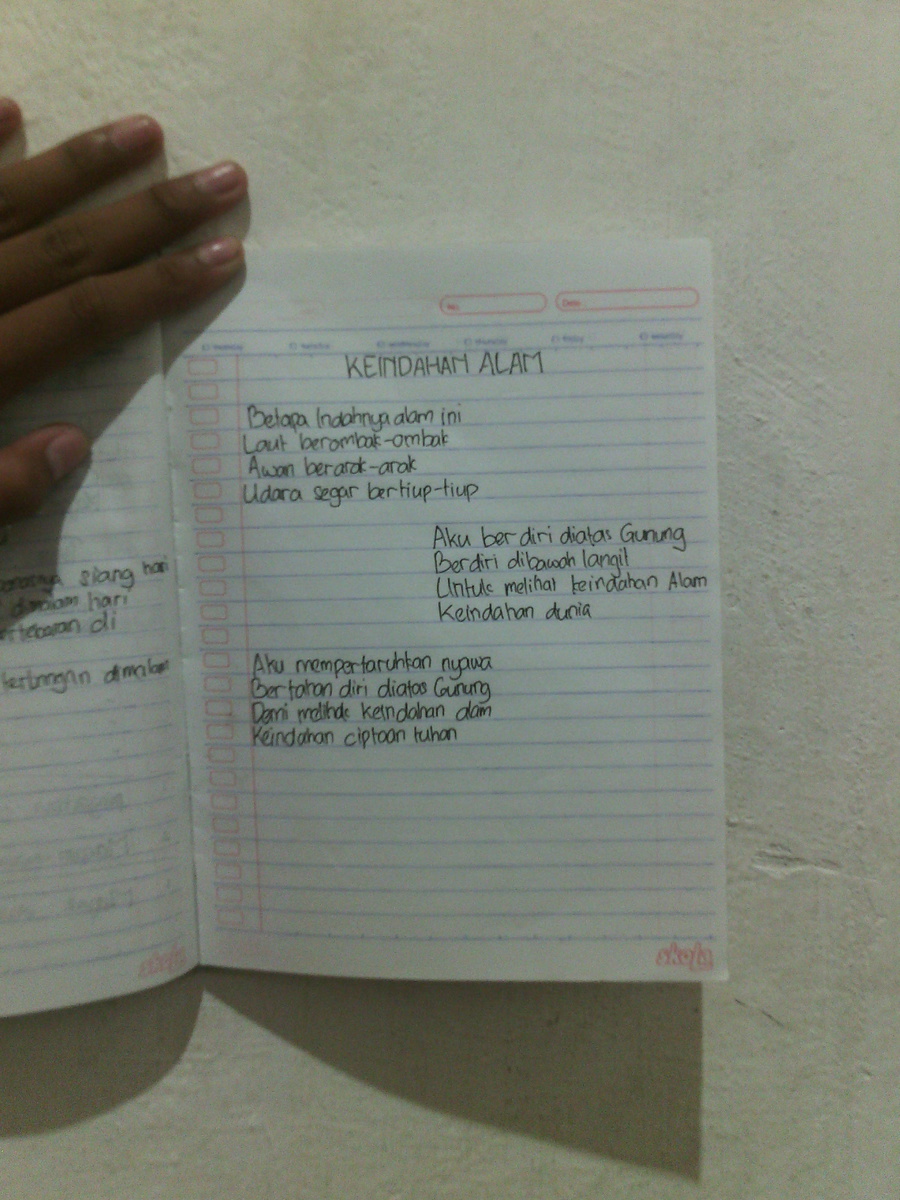 siang hari
hari
di
No.
Date
KEINDAHAN ALAM
Betapa Indahnya alam ini
Laut berombak-ombak
Awan berarak-arak
Udara segar bertiup-tiup
Aku berdiri diatas Gunung
Berdiri dibawah langit
Untuk melihat keindahan Alam
Keindahan dunia
Aku mempertaruhkan nyawa
Bertahan diri diatas Gunung
Demi melihat keindahan alam
Keindahan ciptaan tuhan
skola